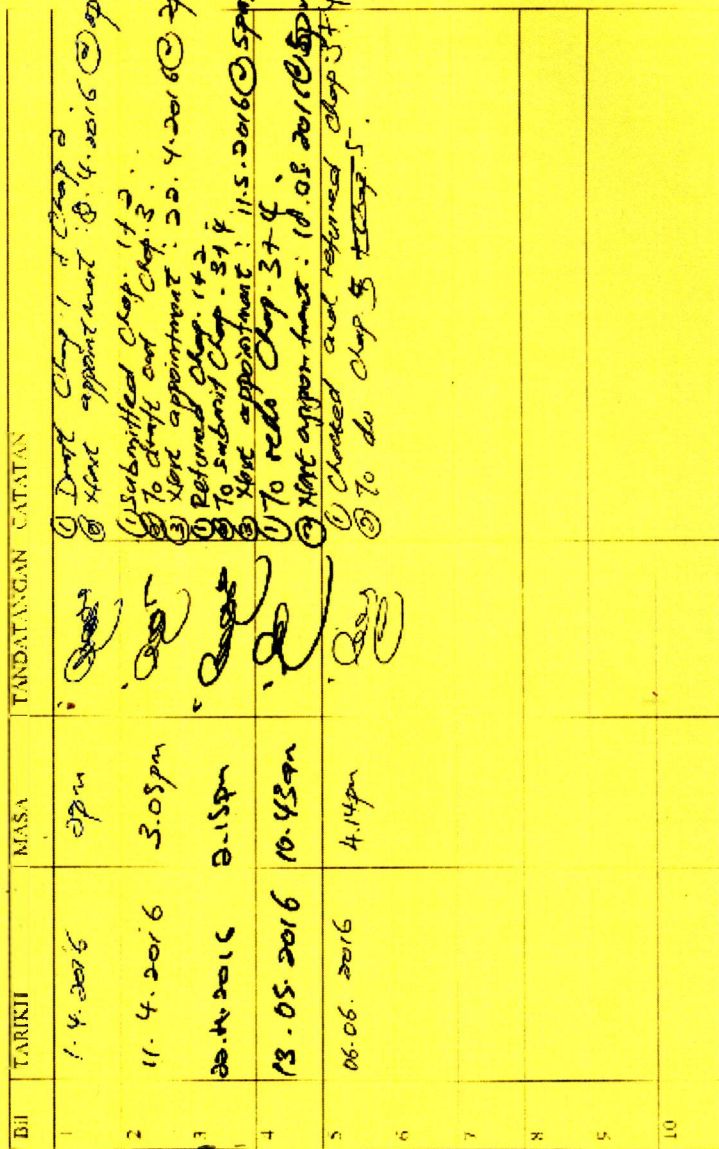 Bil TARIKH MASA TANDATANGAN CATATAN
1 1.4.2016 2pm ① Draft Chap 1 + Chap 2
② Next appointment : 8.4.2016 @
2 11.4.2016 3.05pm ① Submitted Chap. 1+2.
② To draft out Chap. 3.
③ Next appointment : 22.4.2016 @
3 22.4.2016 2.15pm ① Returned Chap. 1+2
② To submit Chap. 3+4
③ Next appointment : 11.5.2016 @ 5pm
4 13.05.2016 10.43am ① To redo Chap. 3+4
② Next appointment : 18.05.2016 @ 5pm
5 06.06.2016 4.14pm ① Checked and returned Chap. 3+4
② To do Chap. 5
6
7
8
9
10